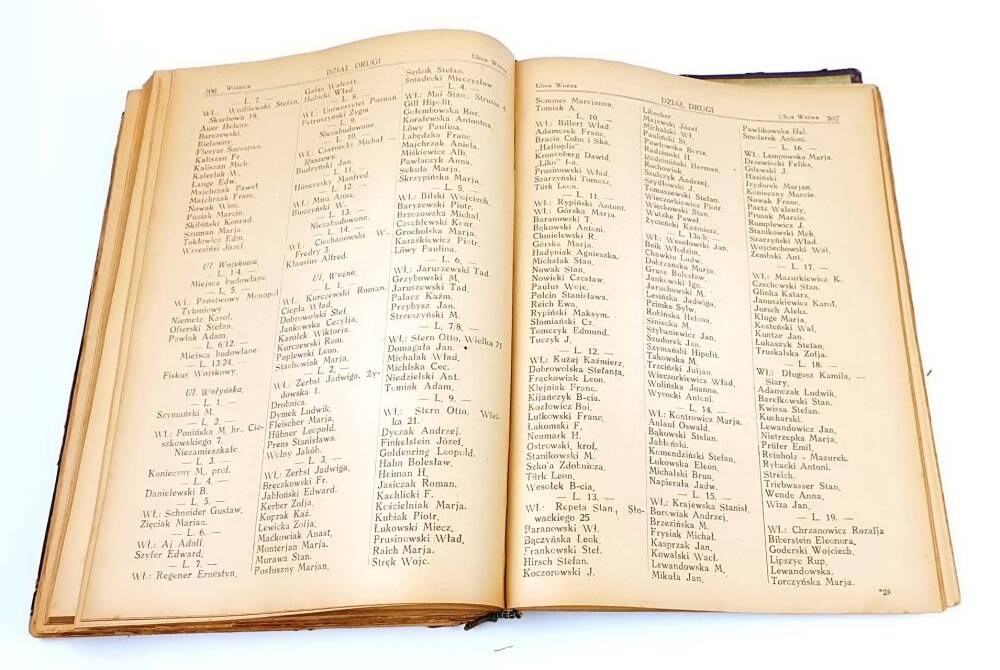 306 Wolnica
DZIAŁ DRUGI
Ulica Woźna
— L. 7 —
Wł.: Wróblewski Stefan,
Skarbowa 18.
Auer Helena.
Barczewski.
Bielawny.
Flesyar Szczepan.
Kaliszan Fr.
Kaliszan Mich.
Katerlak W.
Lange Edw.
Majchrzak Paweł.
Majchrzak Franc.
Nowak Winc.
Puziak Marcin.
Skibiński Konrad.
Szuman Marja.
Tokłowicz Edm.
Wrzesiński Józef.
Ul. Wojskowa.
— L. 1/4. —
Miejsca budowlane.
— L. 5. —
Wł.: Państwowy Monopol
Tytoniowy
Niemetz Karol.
Ofierski Stefan.
Pawlak Adam.
— L. 6/12. —
Miejsca budowlane.
— L. 13/24. —
Fiskus Wojskowy.
Ul. Wołyńska.
— L. 1. —
Szymański M.
— L. 2. —
Wł.: Ponińska M. hr., Cie-
szkowskiego 7.
Niezamieszkałe.
— L. 3. —
Konieczny M., prof.
— L. 4. —
Danielewski B.
— L. 5. —
Wł.: Schneider Gustaw.
Zięciak Marian.
— L. 6. —
Wł.: Aj Adolf.
Szyfer Edward.
— L. 7. —
Wł.: Regener Ernestyn.
Galas Walenty.
Hubicki Wład.
— L. 8. —
Wł.: Uniwersytet Poznań.
Petruszyński Zygm.
— L. 9. —
Niezabudowane.
— L. 10. —
Wł.: Czarnecki Michał
Raszewy.
Budzyński Jan.
— L. 11. —
Hünerasky Manfred.
— L. 12. —
Wł.: Mira Anna.
Bieczyński W.
— L. 13. —
Niezabudowane.
— L. 14. —
Wł.: Ciechanowski W.,
Fredry 3.
Klausius Alfred.
Ul. Woźna.
— L. 1. —
Wł.: Kurczewski Roman.
Ciepła Wład.
Dobrowolski Stef.
Jankowska Cecylja.
Karolek Wiktorja.
Kurczewski Rom.
Poplewski Leon.
Stachowiak Marja.
— L. 2. —
Wł.: Zerbst Jadwiga, Ży-
dowska 1.
Drobnica.
Dymek Ludwik.
Fleischer Marja.
Hübner Leopold.
Prens Stanisława.
Wolny Jakób.
— L. 3. —
Wł.: Zerbst Jadwiga.
Breczkowski Fr.
Jabłoński Edward.
Kerber Zofja.
Koprak Kaź.
Lewicka Zofja.
Maćkowiak Anast.
Monterjan Marja.
Murawa Stan.
Posłuszny Marjan.
Sędzik Stefan.
Śniadecki Mieczysław.
— L. 4. —
Wł.: Mai Stan., Strusia 4.
Gill Hipolit.
Gołembowska Roz.
Koralewska Antonina.
Löwy Paulina.
Łabędzka Franc.
Majchrzak Aniela.
Miśkiewicz Alb.
Pawlaczyk Anna.
Sekuła Marja.
Skrzypińska Marja.
— L. 5. —
Wł.: Bilski Wojciech.
Baryzewski Piotr.
Brzezowska Michal.
Czechlewski Konr.
Grocholska Marja.
Karaśkiewicz Piotr.
Löwy Paulina.
— L. 6. —
Wł.: Jaruszewski Tad.
Grzybowski M.
Jaruszewski Tad.
Pałacz Kaźm.
Przybysz Jan.
Strzeszyński M.
— L. 7/8. —
Wł.: Stern Otto, Wielka 21
Domagała Jan.
Michalak Wład.
Michlska Cec.
Niedzielski Ant.
Tomiak Adam.
— L. 9. —
Wł.: Stern Otto, Wiel-
ka 21.
Dyczak Andrzej.
Finkelstein Józef.
Goldenring Leopold.
Hahn Bolesław.
Heiman H.
Jasiczak Roman.
Kachlicki F.
Kościelniak Marja.
Kubiak Piotr.
Łukowski Miecz.
Prusinowski Wład.
Raich Marja.
Stręk Wojc.
Ulica Woźna
DZIAŁ DRUGI
Ulica Woźna 307
Sommer Marcjanna.
Tomiak A.
— L. 10. —
Wł.: Billert Wład.
Adamczek Franc.
Bracia Cohn i Ska,
„Haftoplis".
Kronenberg Dawid.
„Liko" f-a.
Prusinowski Wład.
Szarzyński Tomasz.
Türk Leon.
— L. 11. —
Wł.: Rypiński Antoni.
Wł.: Górska Marja.
Baranowski T.
Bąkowski Antoni.
Chmielewski R.
Górska Marja.
Hadyniak Agnieszka.
Michalak Stan.
Nowak Stan.
Nowicki Czesław.
Paulus Wojc.
Polcin Stanisława.
Reich Ewa.
Rypiński Maksym.
Słomiański Cz.
Tomczyk Edmund.
Tuczyk J.
— L. 12. —
Wł.: Kużaj Kaźmierz.
Dobrowolska Stefanja.
Frąckowiak Leon.
Klejniak Franc.
Kijańczyk B-cia.
Kozłowicz Boi.
Lutkowski Franc.
Łukomski F.
Neumark H.
Ostrowski, krof.
Stanikowski M.
Szko'a Zdobnicza.
Türk Leon.
Wesołek B-cia.
— L. 13. —
Wł.: Repeta Stan., Sło-
wackiego 25
Baranowski Wł.
Bączyńska Leok.
Frankowski Stef.
Hirsch Stefan.
Koczorowski J.
Libocher
Majewski Józef
Michalski Wł.
Pauliński St.
Pawłowska Berta.
Radzimski H.
Radzimiński Herman.
Rochowiak.
Szulczyk Andrzej.
Szydłowski J.
Tomaszewski Stefan.
Wieczorkiewicz Piotr.
Więckowski Stan.
Wutzke Paweł.
Życieński Kaźmierz.
— L. 13a/b. —
Wł.: Wesołowski Jan.
Bcik Włodzim.
Chawkin Ludw.
Dobrzańska Marja.
Gruss Bolesław.
Jankowski Ign.
Jaruchowski M.
Lesińska Jadwiga.
Primke Sylw.
Robińska Helena.
Siniecka M.
Stybaniewicz Jan.
Szudorek Jan.
Szymański Hipolit.
Takowska M.
Trzciński Juljan.
Wieczorkiewicz Wład.
Wolińska Joanna.
Wysocki Antoni.
— L. 14. —
Wł.: Kontrowicz Marja.
Anlauf Oswald.
Bąkowski Stefan.
Jabłoński.
Komendziński Stefan.
Łukowska Eleon.
Michalski Brun.
Napierała Jadw.
— L. 15. —
Wł.: Krajewska Stanisł.
Borowiak Andrzej.
Brzezińska M.
Frysiak Michał.
Kasprzak Jan.
Kowalski Wacł.
Lewandowska M.
Mikuła Jan.
Pawlikowska Hel.
Smolarek Antoni.
— L. 16. —
Wł.: Lampowska Marja.
Drzewiecki Feliks.
Gilewski J.
Hasiński.
Izydorek Marjan.
Konieczny Marcin.
Nowak Franc.
Paetz Walenty.
Prusak Marcin.
Rumplewicz J.
Stanikowski Mch.
Szarzyński Wład.
Wojciechowski Wal.
Zembski Ant.
— L. 17. —
Wł.: Mazurkiewicz K.
Czechowski Stan.
Glinka Katarz.
Januszkiewicz Karol.
Jursch Aleks.
Kluge Marja.
Kosteński Wal.
Kuntze Jan.
Łukaszyk Stefan.
Truskalska Zofja.
— L. 18. —
Wł.: Długosz Kamila, —
Siary.
Adamczak Ludwik.
Barełkowski Stan.
Kwissa Stefan.
Kucharski.
Lewandowicz Jan.
Nietrzepka Marja.
Prüfer Emil.
Reinholz - Mazurek.
Rybacki Antoni.
Streich.
Triebwasser Stan.
Wende Anna.
Wiza Jan.
— L. 19. —
Wł.: Chrzanowicz Rozalja
Biberstein Eleonora.
Goderski Wojciech.
Lipszyc Rup.
Lewandowska.
Torczyńska Marja.
*28